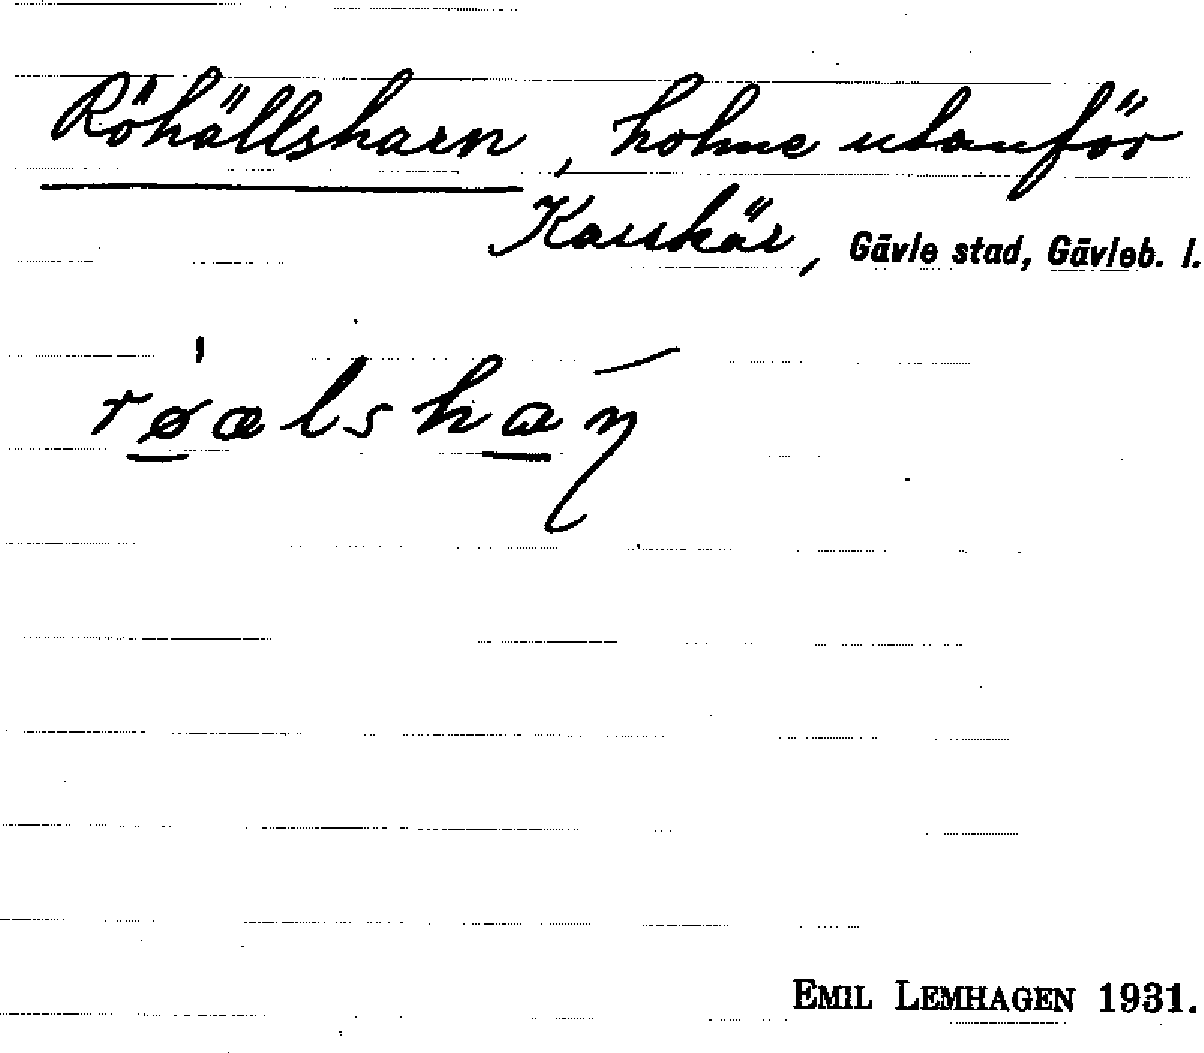 Röhällsharn, holme utanför
Gävle stad, Gävleb. l.
EMIL LEMHAGEN 1931.